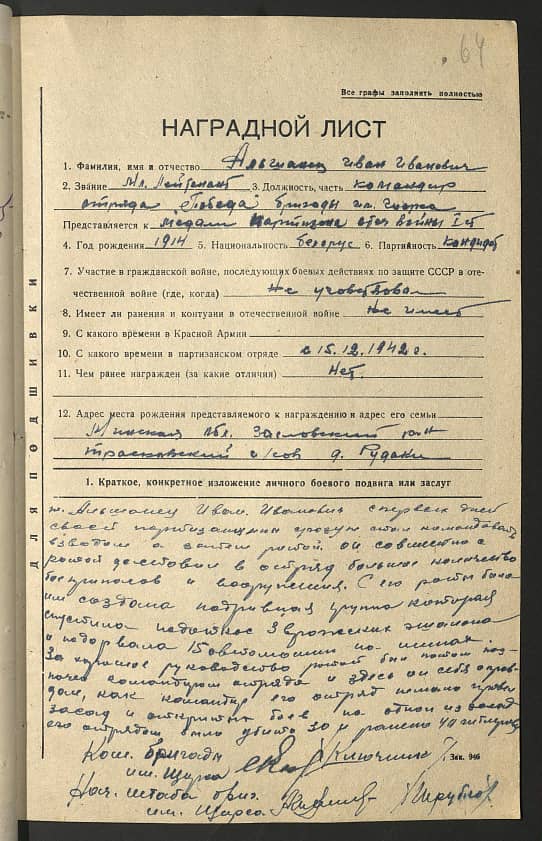 64
Все графы заполнять полностью
НАГРАДНОЙ ЛИСТ
1. Фамилия, имя и отчество Альшанец Иван Иванович
2. Звание Мл. Лейтенант 3. Должность, часть командир
отряда "Победа" бригады им. Щорса
Представляется к медали Партизана отеч войны I ст
4. Год рождения 1914 5. Национальность белорус 6. Партийность Кандидат
7. Участие в гражданской войне, последующих боевых действиях по защите СССР в оте-
чественной войне (где, когда) не участвовал
8. Имеет ли ранения и контузии в отечественной войне не имеет
9. С какого времени в Красной Армии
10. С какого времени в партизанском отряде с 15.12.1942 г.
11. Чем ранее награжден (за какие отличия) Нет.
12. Адрес места рождения представляемого к награждению и адрес его семьи
Минская обл. Заславский р-н
с/сов д. Рудаки
1. Краткое, конкретное изложение личного боевого подвига или заслуг
т. Альшанец Иван Иванович с первых дней
своей партизанщины стал командовать
взводом а затем ротой. он совместно с
ротой доставал в отряд большое количество
боеприпасов и вооружения. С его роты была
им создана подрывная группа которая
спустила под откос 3 вражеских эшалона
и подорвала 15 автомашин на минах.
За хорошее руководство ротой был потом наз-
начен командиром отряда и здесь он себя оправ-
дал, как командир его отряд немало провел
засад и открытых боев на одной из засад
его отрядом было убито 30 и ранено 40 гитлеров
Ком. бригады
им. Щорса Ключник
Зак. 946
Нач. штаба бриг.
им. Щорса
ДЛЯ ПОДШИВКИ